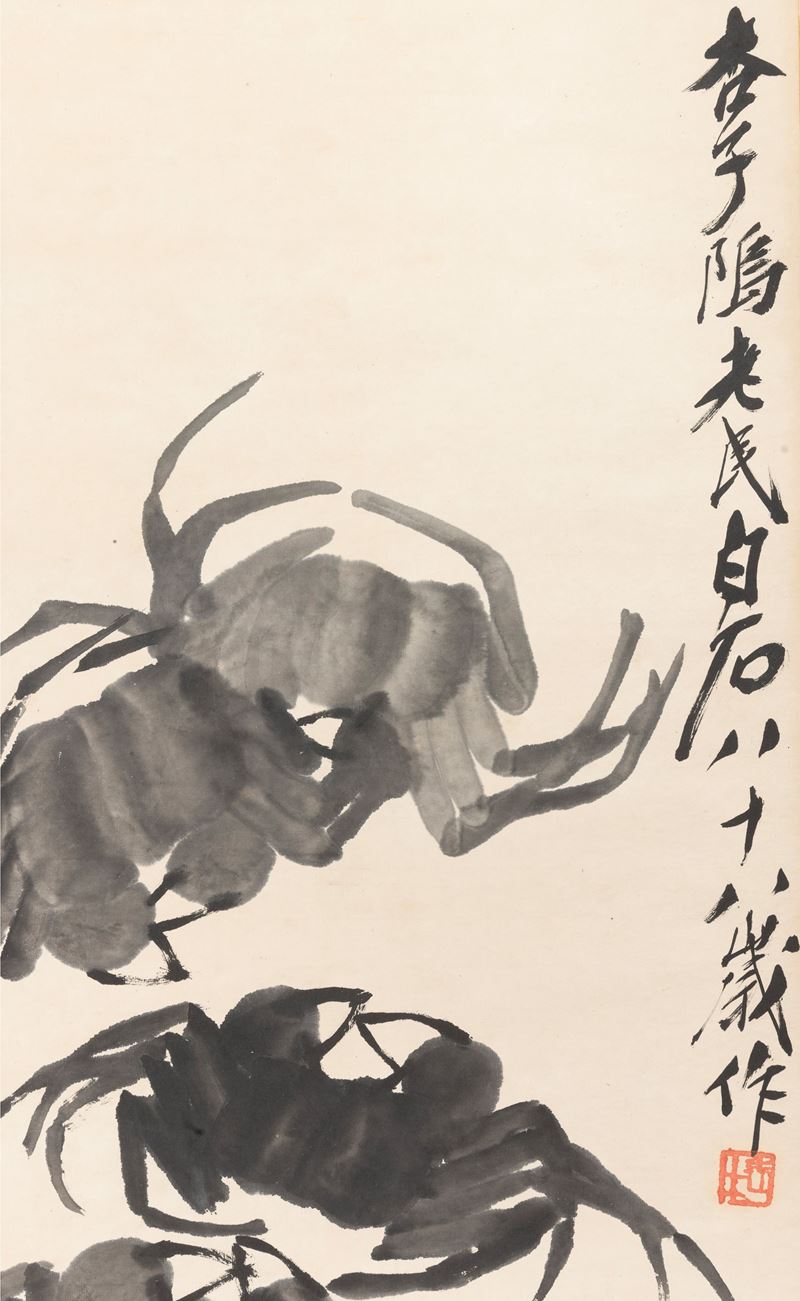 杏子隖老民白石八十八歲作